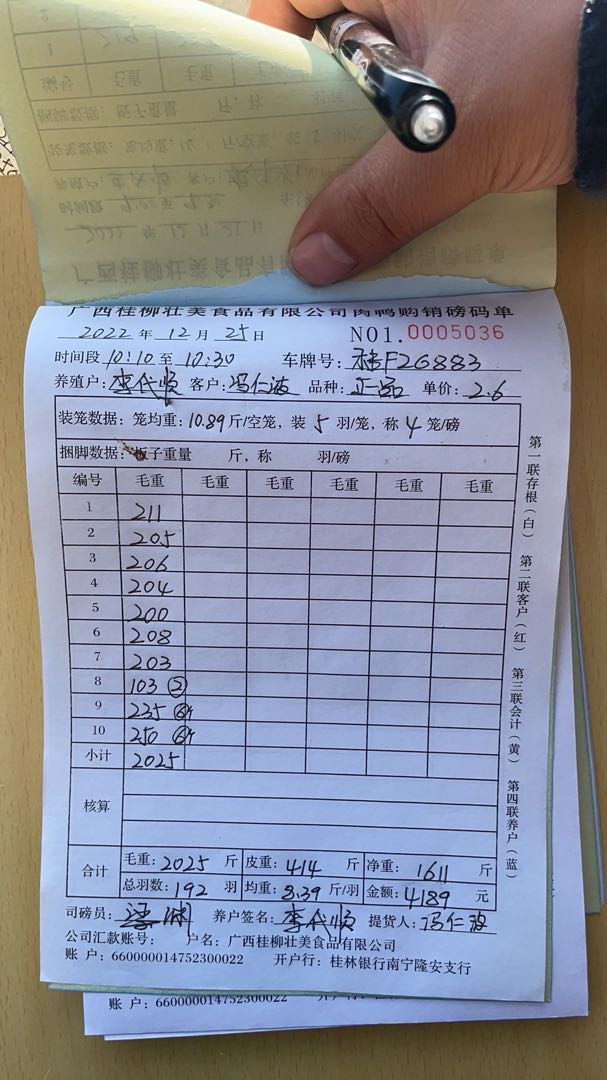 广西桂柳壮美食品有限公司肉鸭购销磅码单
2022 年 12 月 25 日 NO1.0005036
时间段 10:10 至 10:30 车牌号: F26883
养殖户: 李代顺 客户: 冯仁波 品种: 正品 单价: 2.6
装笼数据: 笼均重: 10.89 斤/空笼, 装 5 羽/笼, 称 4 笼/磅
捆脚数据: 板子重量 斤, 称 羽/磅
编号 毛重 毛重 毛重 毛重 毛重 毛重
1 211
2 205
3 206
4 204
5 200
6 208
7 203
8 103 ②
9 235
10 250
小计 2025
核算
合计 毛重: 2025 斤 皮重: 414 斤 净重: 1611 斤
总羽数: 192 羽 均重: 8.39 斤/羽 金额: 4189 元
司磅员: 养户签名: 李代顺 提货人: 冯仁波
公司汇款账号: 户名: 广西桂柳壮美食品有限公司
账 户: 660000014752300022 开户行: 桂林银行南宁隆安支行
第一联存根(白) 第二联客户(红) 第三联会计(黄) 第四联养户(蓝)
账 户: 660000014752300022